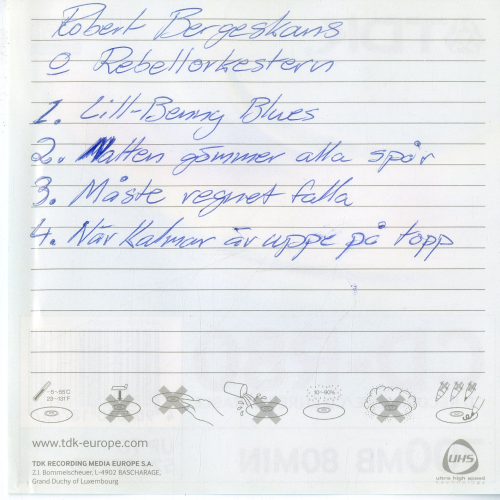 Robert Bergeskans
o Rebellorkestern
1. Lill-Benny Blues
2. Natten gömmer alla spår
3. Måste regnet falla
4. När Kalmar är uppe på topp
-5-55°C
23-131°F
10%-90%
www.tdk-europe.com
TDK RECORDING MEDIA EUROPE S.A.
Z.I. Bommelscheuer, L-4902 BASCHARAGE,
Grand Duchy of Luxembourg
UHS
ultra high speed
700MB 80MIN